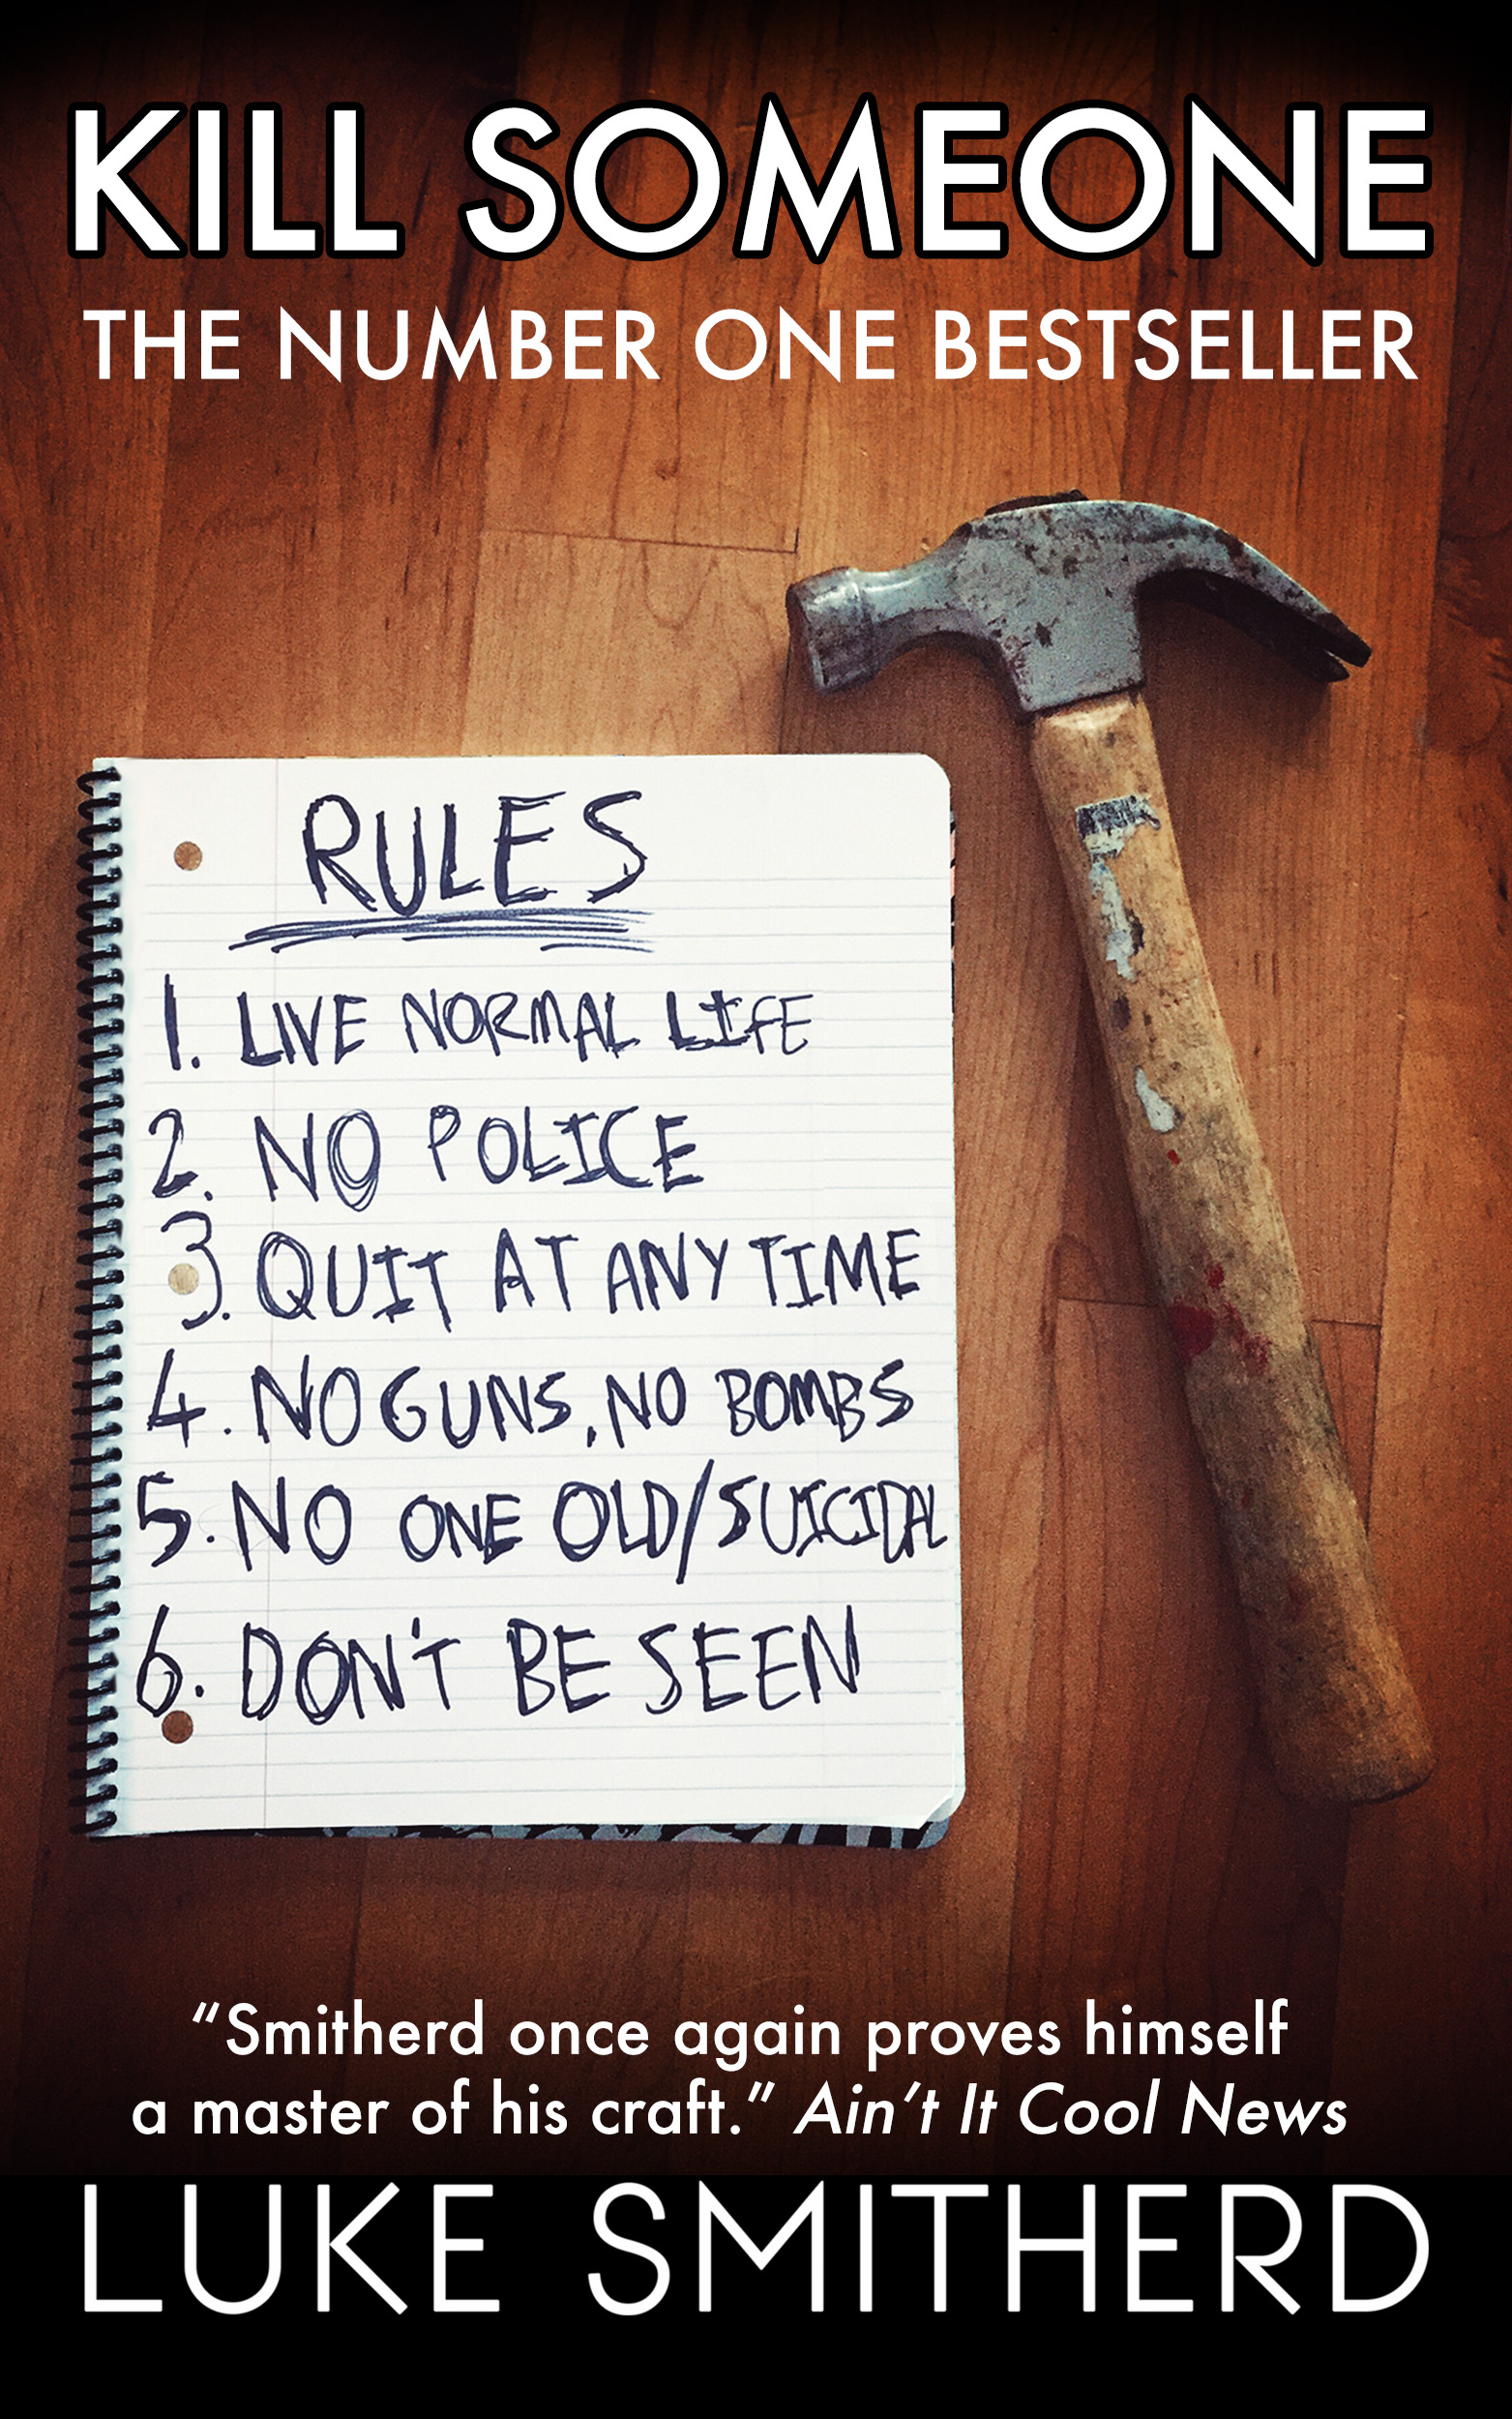 KILL SOMEONE
THE NUMBER ONE BESTSELLER
RULES
1. LIVE NORMAL LIFE
2. NO POLICE
3. QUIT AT ANY TIME
4. NO GUNS, NO BOMBS
5. NO ONE OLD/SUICIDAL
6. DON'T BE SEEN
“Smitherd once again proves himself
a master of his craft.” Ain’t It Cool News
LUKE SMITHERD